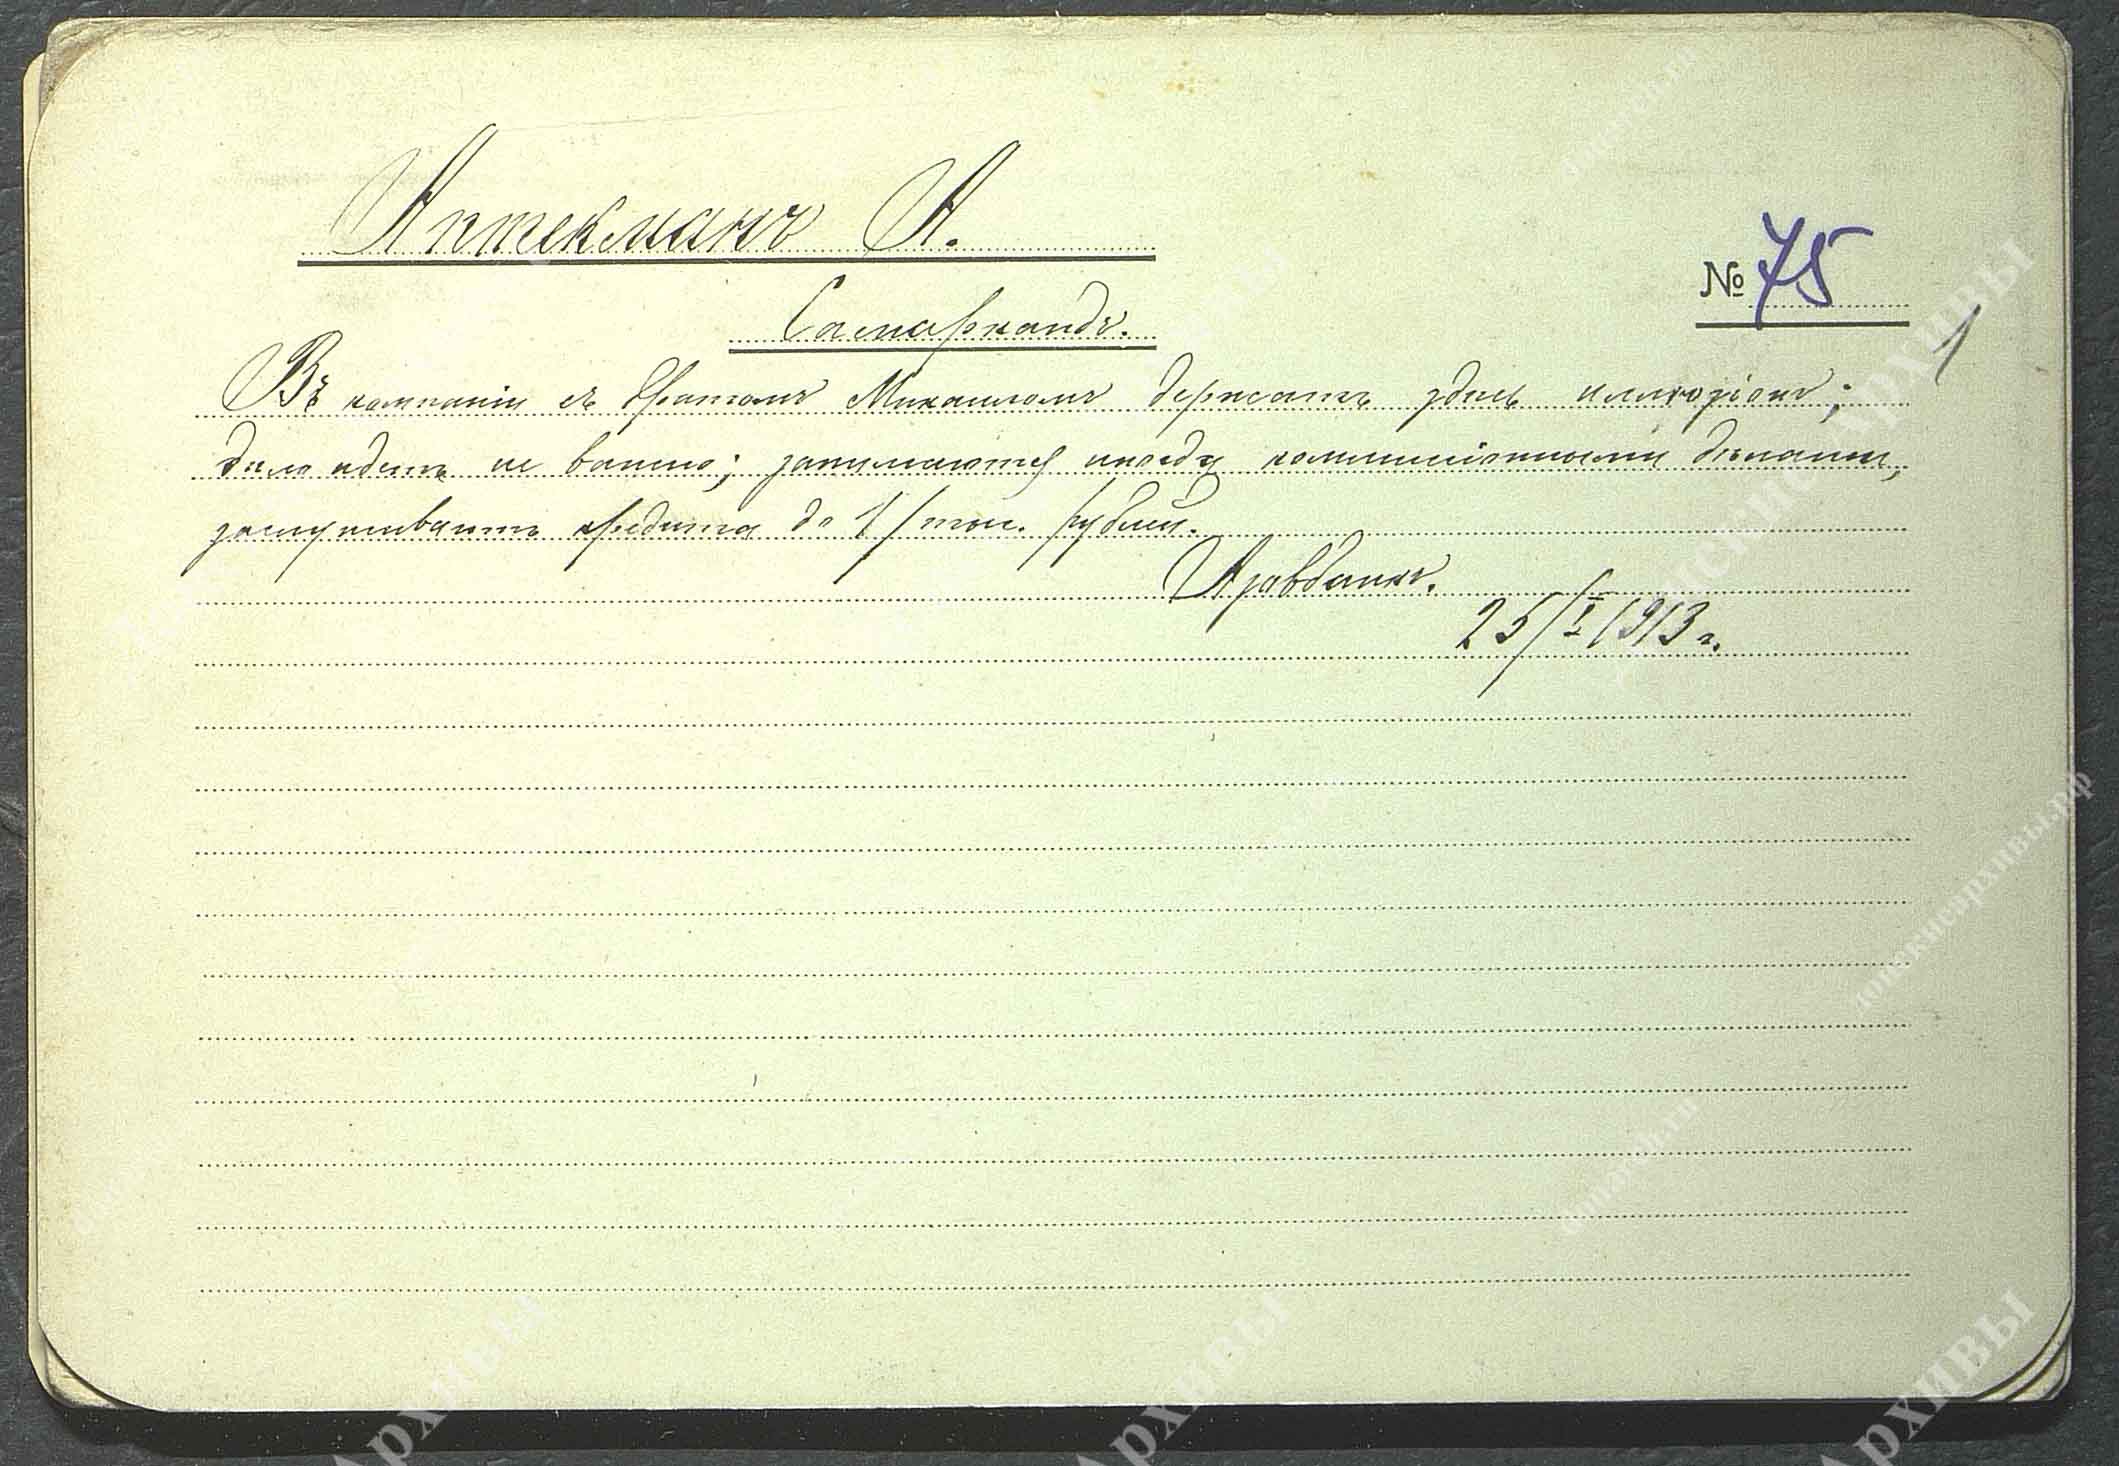 Аптекманъ А.
№ 75
Самаркандъ.
1
Въ компаніи съ братомъ Михаиломъ держатъ здѣсь иллюзіонъ;
дѣло идетъ не важно; занимаются иногда коммиссіонными дѣлами,
заслуживаютъ кредита до 1/тыс. рублей.
Азовбанкъ.
25/I 1913 г.
Архивы
Архивы
Архивы
Архивы
донакисархивы.рф